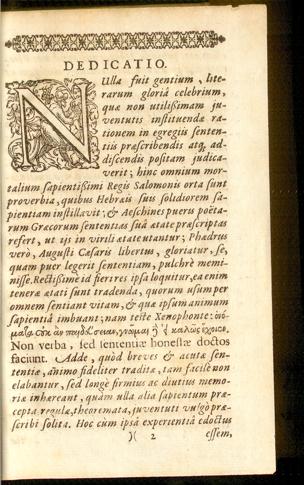 DEDICATIO.
NUlla fuit gentium, lite-
rarum gloriâ celebrium,
quæ non utilissimam ju-
ventutis instituendæ ra-
tionem in egregiis senten-
tiis præscribendis atq; ad-
discendis positam judica-
verit; hinc omnium mor-
talium sapientissimi Regis Salomonis orta sunt
proverbia, quibus Hebræis suis solidiorem sa-
pientiam instillavit; & Aeschines puero poëta-
rum Græcorum sententias suâ ætate præscriptas
refert, ut iis in virili ætate utantur; Phædrus
verò, Augusti Cæsaris libertus, gloriatur, se,
quam puer legerit sententiam, pulchrè memi-
nisse. Rectissimè id fieri res ipsa loquitur, ea enim
teneræ ætati sunt tradenda, quorum usum per
omnem sentiant vitam, & quæ ipsum animum
sapientiâ imbuant; nam teste Xenophonte: ὀνό-
ματα οὐκ ἂν παιδεύσειαν, γνῶμαι ἢ εἰ καλῶς ἔχοιεν.
Non verba, sed sententiæ honestæ doctos
faciunt. Adde, quòd breves & acutæ sen-
tentiæ, animo fideliter traditæ, tam facilè non
elabantur, sed longè firmius ac diutius memo-
riæ inhæreant, quàm ulla alia sapientum præ-
cepta, regulæ, theoremata, juventuti vulgò præ-
scribi solita. Hoc cum ipsâ experientiâ edoctus
)( 2 essem,